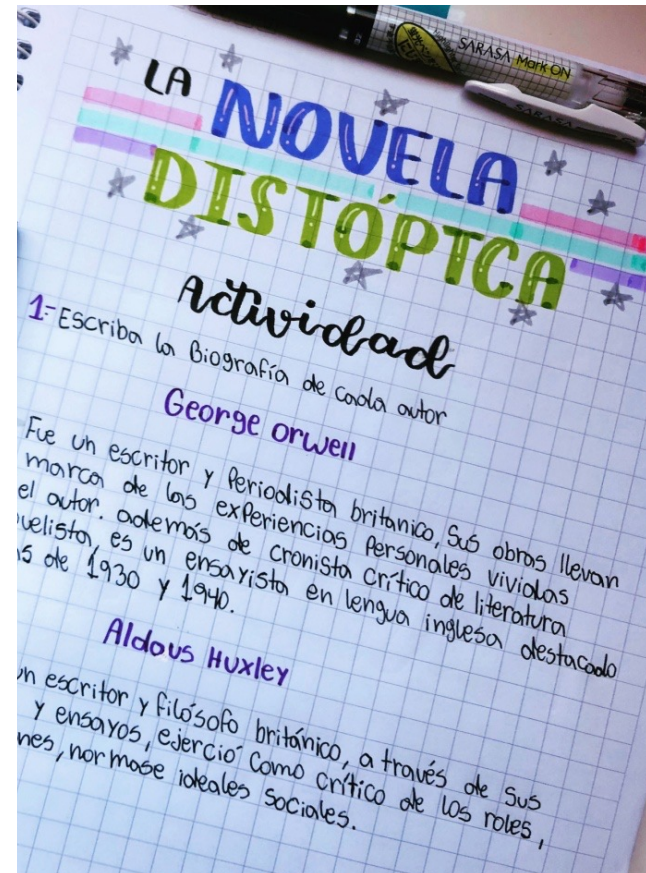 SARASA Mark ON
SARASA
LA NOVELA
DISTÓPTCA
Actividad
1- Escriba la Biografía de cada autor
George orwell
Fue un escritor y Periodista britanico, Sus obras llevan
marca de las experiencias Personales vividas
el autor. además de cronista crítico de literatura
velista, es un ensayista en lengua inglesa destacado
s de 1930 y 1940.
Aldous Huxley
un escritor y filósofo británico, a través de sus
y ensayos, ejerció como crítico de los roles,
nes, normase ideales sociales.